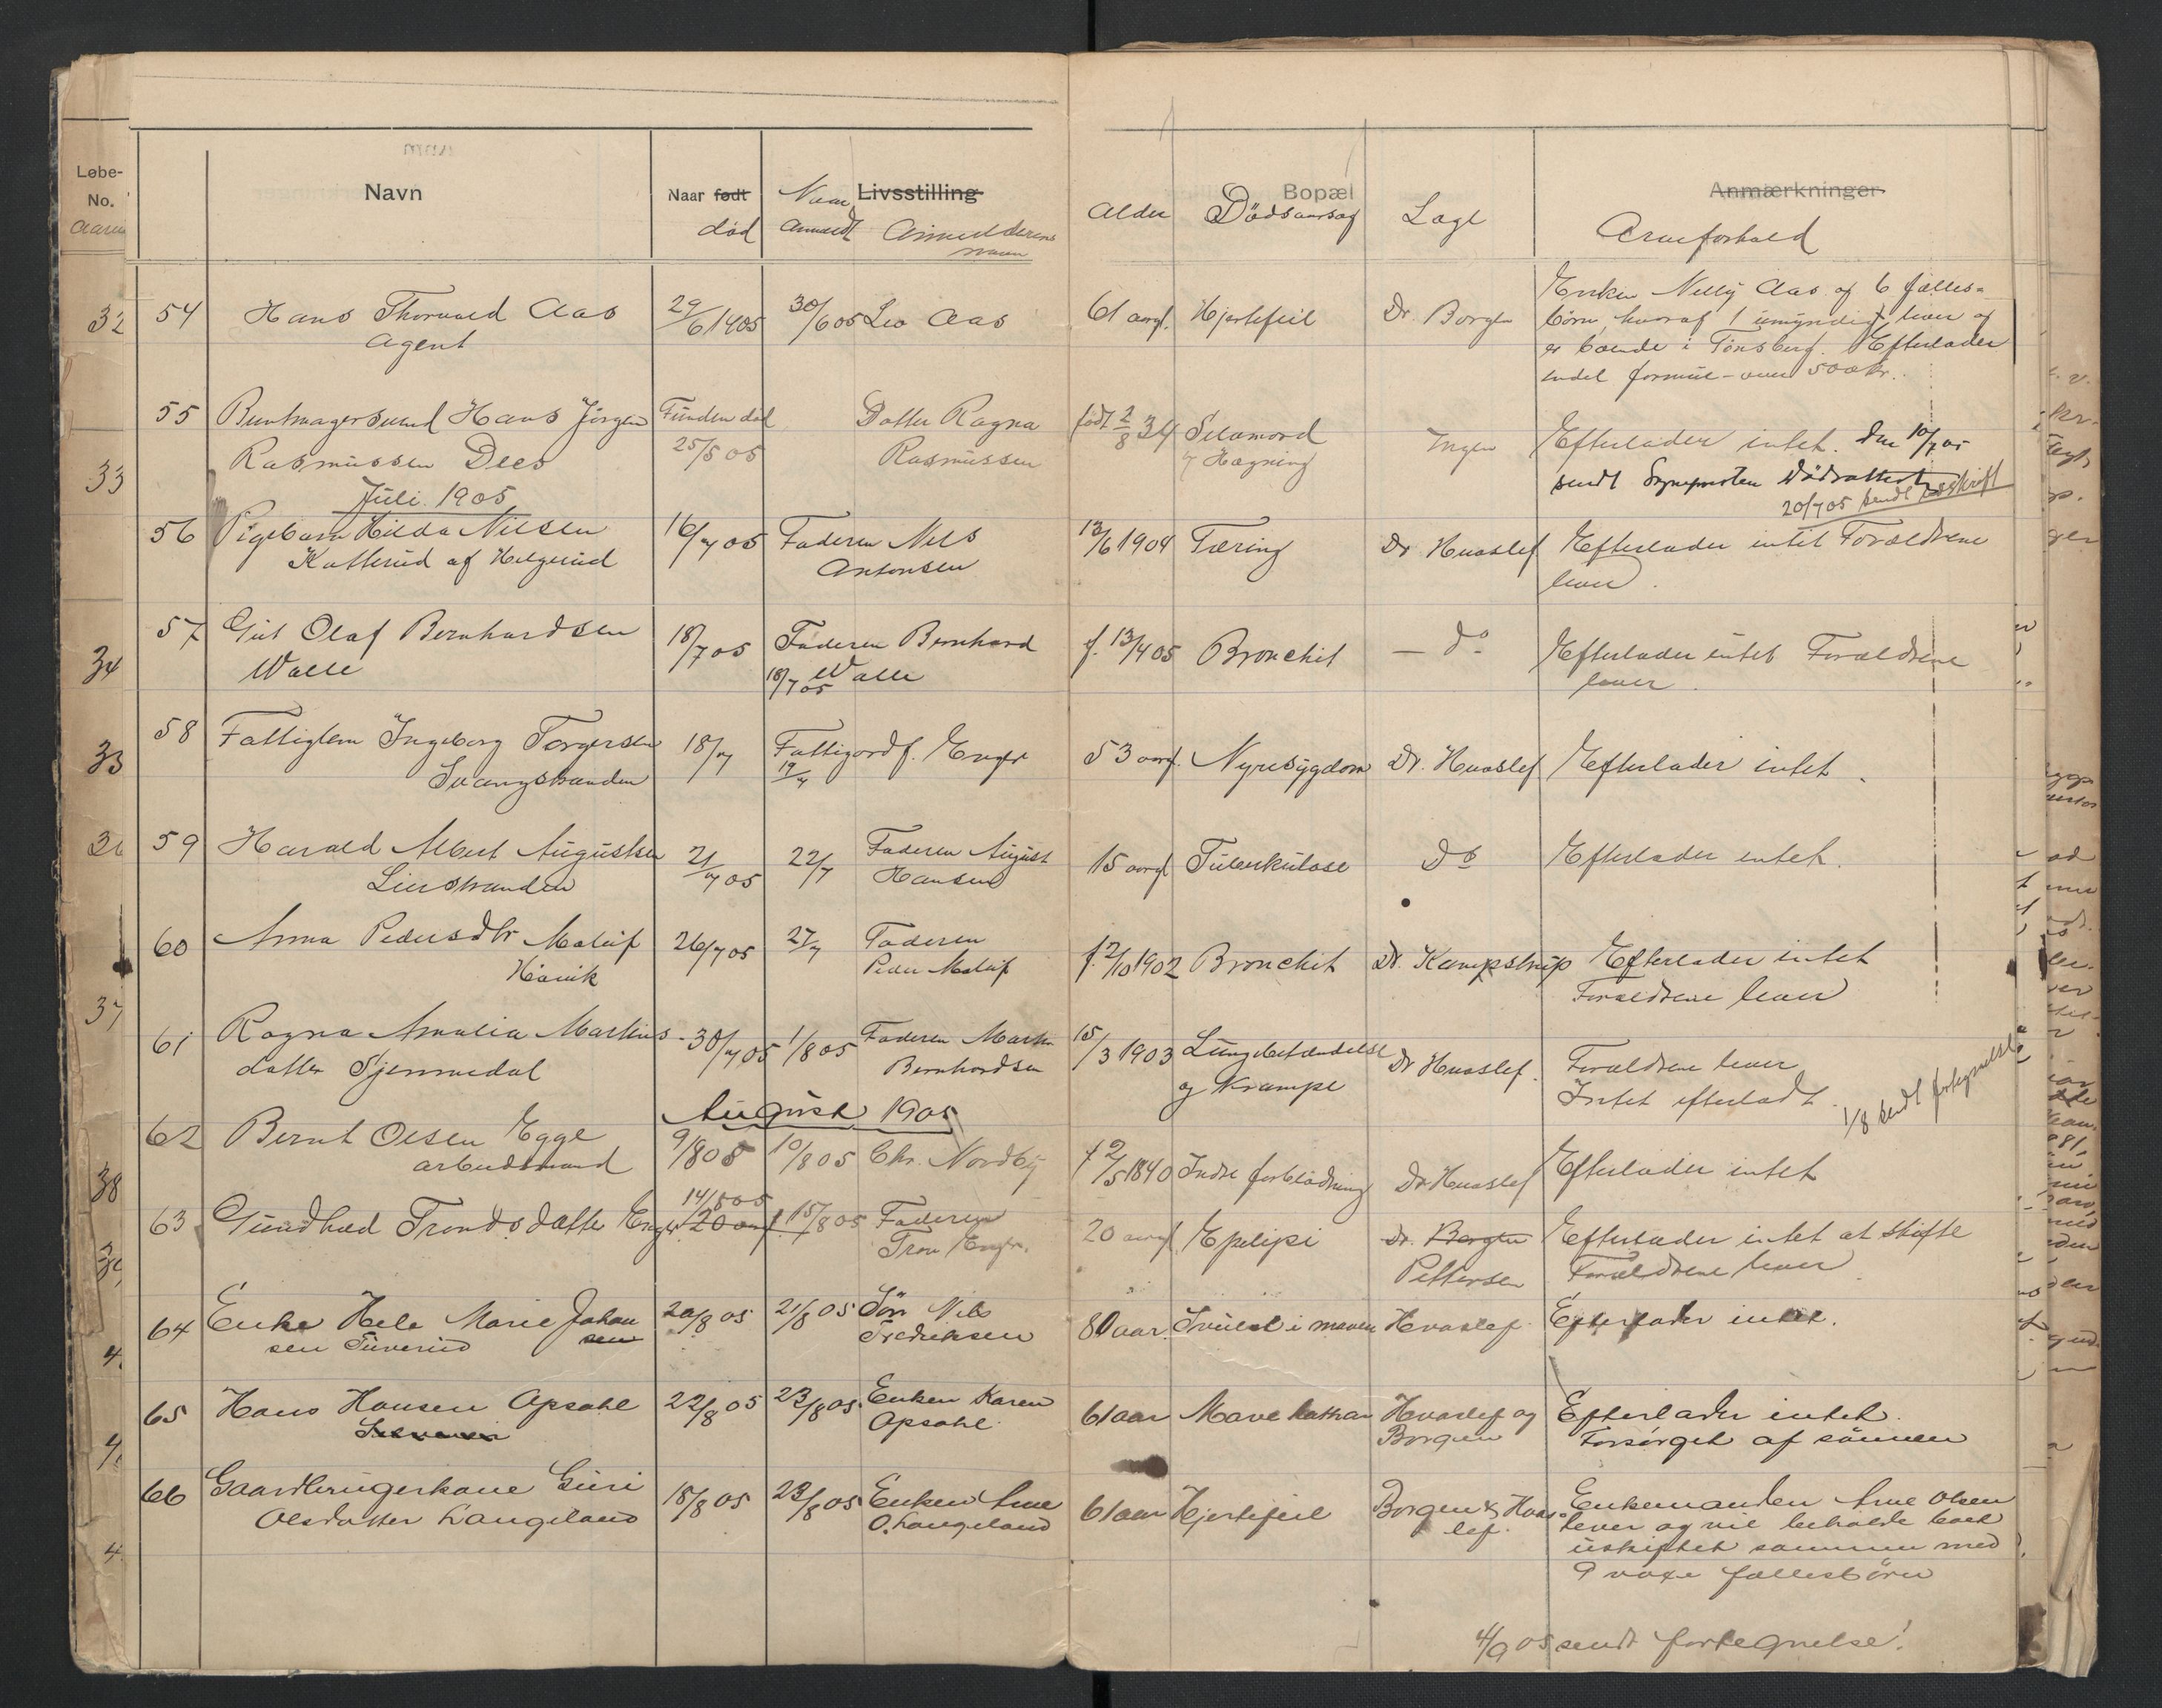 Løbe-
No.
Navn
Naar født
død
Naar
Anmeldt
Livsstilling
Anmelderens
navn
Alder
Bopæl
Dödsaarsag
Læge
Anmærkninger
Arveforhold
32
54 Hans Thorvald Aas 29/6 1905 30/6 05 Leo Aas 61 aarg. Hjertefeil Dr. Borgen Enken Nelly Aas og 6 fælles-
Agent
börn, hvoraf 1 umyndigt, lever og
er boende i Tönsberg. Efterlader
endel formue - over 500 kr.
55 Buntmagersvend Hans Jörgen Funden död Datter Ragna født 2/8 34 Selvmord Ingen Efterlader intet. Den 10/7 05
33
Rasmussen Dees 25/5 05 Rasmussen v/ Hægning sendt Dödsattest
20/7 05 sendt
Juli 1905
56 Pigebarn Hilda Nilsen 16/7 05 Faderen Nils 13/6 1904 Tæring Dr Hvoslef Efterlader intet Forældrene
Katterud af Helgerud Antonsen lever.
57 Gut Olaf Bernhardsen 18/7 05 Faderen Bernhard f. 13/4 05 Bronchit — do Efterlader intet Forældrene
34
Walle 18/7 05 Walle lever.
58 Fattiglem Ingeborg Torgersen 18/7 Fattiggårdf. Enger 53 aarg. Nyresygdom Dr. Hvoslef Efterlader intet.
Svangstranden 19/7
59 Harald Albert Augustsen 21/7 05 22/7 Faderen August 15 aarg Tuberkulose Do Efterlader intet.
Lierstranden Hansen
60 Anna Pedersdtr Maleif 26/7 05 27/7 Faderen f. 2/10 1902 Bronchit Dr. Kampstrup Efterlader intet
Hørvik Peder Maleif Forældrene lever
37
61 Ragna Amalia Martins- 30/7 05 1/8 05 Faderen Martin 15/3 1903 Lungebetændelse Dr Hvoslef. Forældrene lever
datter Gjennedal Bernhardsen og Krampe Intet efterladt.
1/8 sendt fortegnelse
August 1905
62 Bernt Olsen Egge 9/8 05 10/8 05 Chr. Nordby f 2/5 1840 Indre forblödning Dr Hvoslef Efterlader intet
arbeidsmand
38
14/8 05
63 Gundhild Tronds datter Enger 20 aarg. 15/8 05 Faderen 20 aarg. Epelipsi Dr. Borgen Efterlader intet at skifte
Tron Enger. Pettersen Forældrene lever
64 Enke Hele Marie Johan 20/8 05 21/8 05 Sön Nils 80 aar. Svulst i maven Hvoslef. Efterlader intet.
sen Tuverud sen Fredriksen
65 Hans Hansen Opsahl 22/8 05 23/8 05. Enken Karen 61 aar Mave kattar Hvoslef og Efterlader intet.
Opsahl. Borgen Forsörget af sönnen
66 Gaardbrugerkone Guri 18/8 05 23/8 05 Enken Arne 61 aar Hjertefeil Borgen & Hvos- Enkemanden Arne Olsen
Olsdatter Langeland O. Langeland lef. lever og vil beholde boet
uskiftet sammen med
9 voxe fællesbörn
4/9 05 sendt fortegnelse!